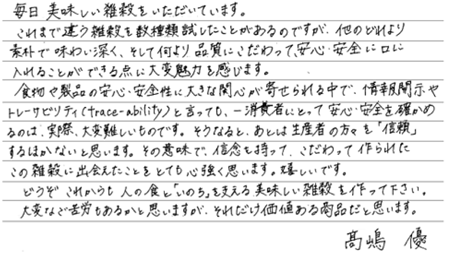 毎日 美味しい雑穀をいただいています。
これまで違う雑穀を数種類試したことがあるのですが、他のどれより
素朴で味わい深く、そして何より品質にこだわって、安心・安全に口に
入れることができる点に大変魅力を感じます。
食物や製品の安心・安全性に大きな関心が寄せられる中で、情報開示や
トレーサビリティ(trace-ability)と言っても、一消費者にとって安心・安全を確かめ
るのは、実際、大変難しいものです。そうなると、あとは生産者の方々を「信頼」
するほかないと思います。その意味で、信念を持って、こだわって作られた
この雑穀に出会えたことをとても心強く思います。嬉しいです。
どうぞ これからも 人の食と「いのち」を支える美味しい雑穀を作って下さい。
大変なご苦労もあるかと思いますが、それだけ価値ある商品だと思います。
髙嶋 優